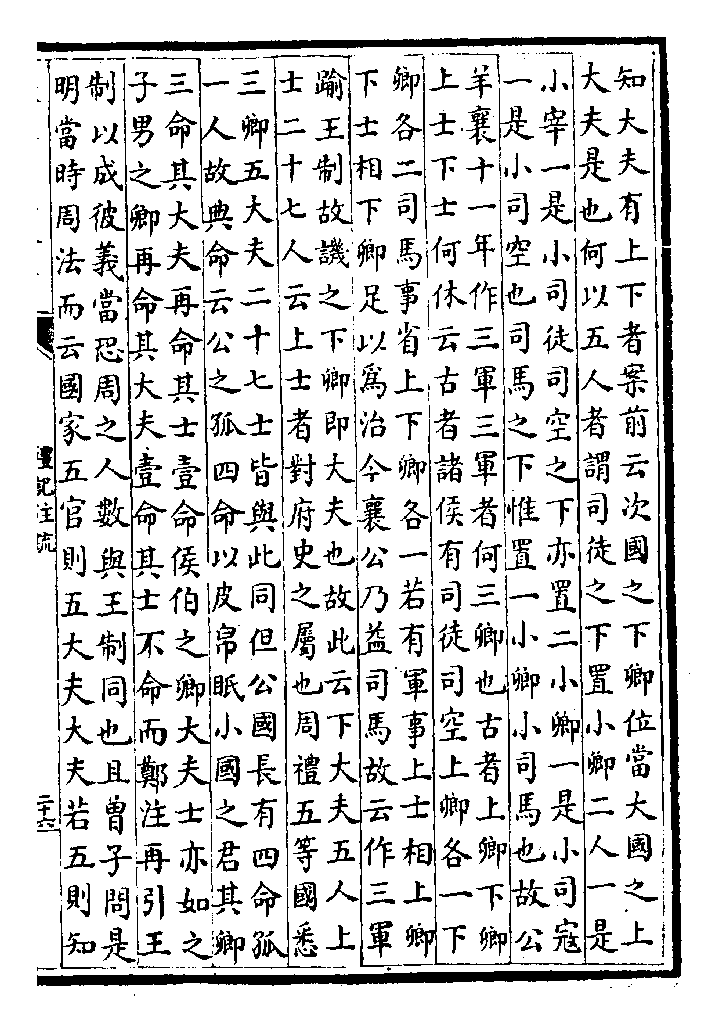 知大夫有上下者案前云次國之下卿位當大國之上
大夫是也何以五人者謂司徒之下置小卿二人一是
小宰一是小司徒司空之下亦置二小卿一是小司寇
一是小司空也司馬之下惟置一小卿小司馬也故公
羊襄十一年作三軍三軍者何三卿也古者上卿下卿
上士下士何休云古者諸侯有司徒司空上卿各一下
卿各二司馬事省上下卿各一若有軍事上士相上卿
下士相下卿足以爲治今襄公乃益司馬故云作三軍
踰王制故譏之下卿即大夫也故此云下大夫五人上
士二十七人云上士者對府史之屬也周禮五等國悉
三卿五大夫二十七士皆與此同但公國長有四命孤
一人故典命云公之孤四命以皮帛眂小國之君其卿
三命其大夫再命其士壹命侯伯之卿大夫士亦如之
子男之卿再命其大夫壹命其士不命而鄭注再引王
制以成彼義當恐周之人數與王制同也且曾子問是
明當時周法而云國家五官則五大夫大夫若五則知
禮記注疏
二十六